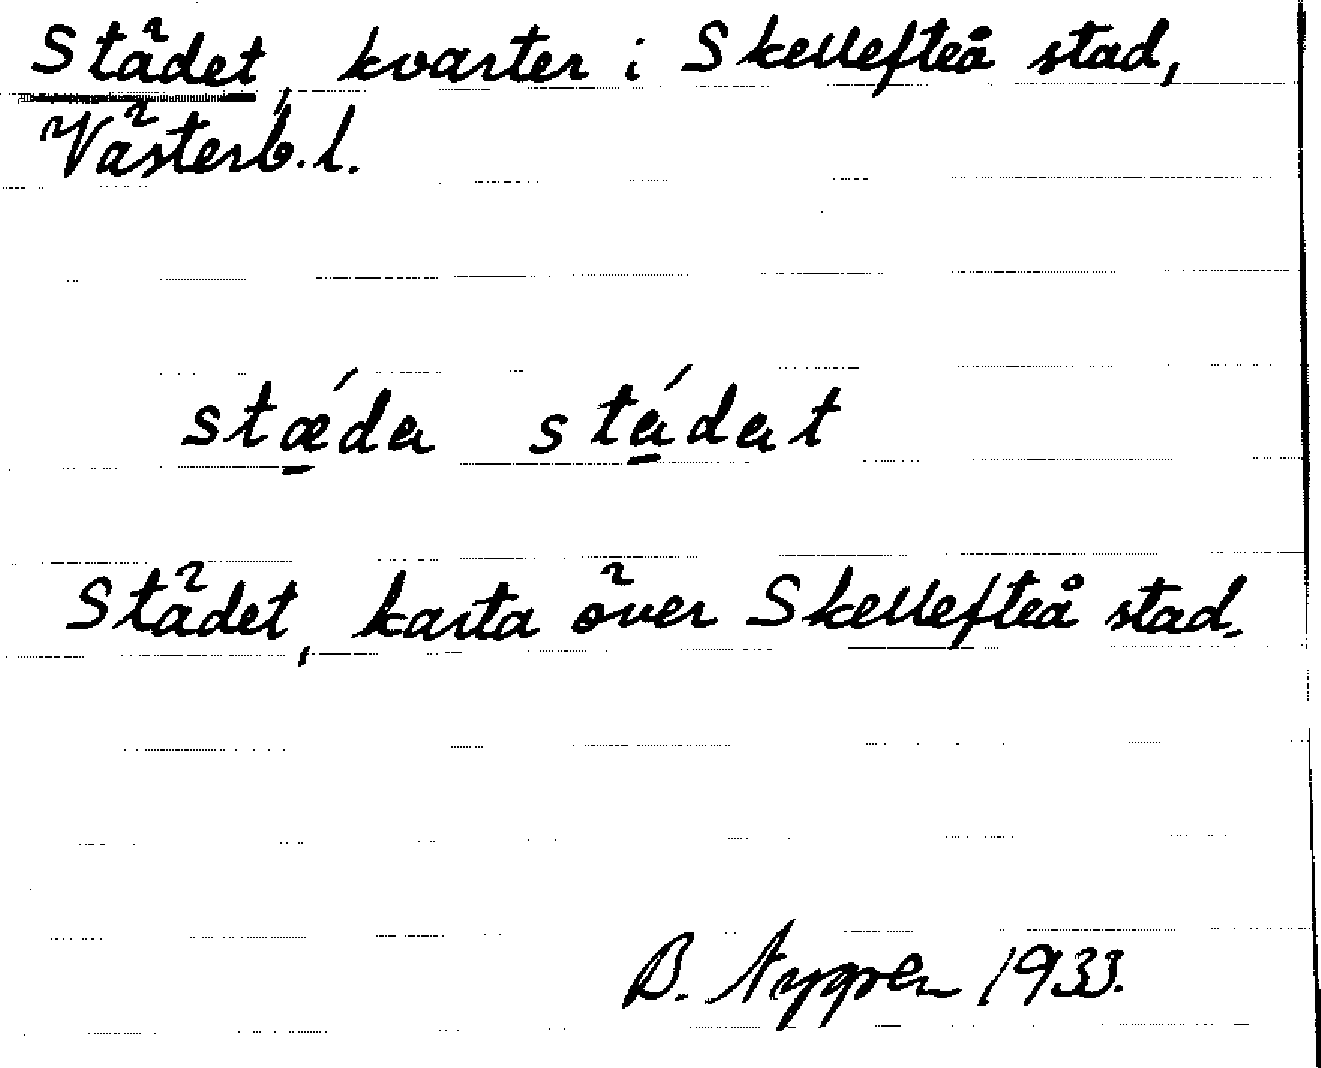 Städet, kvarter i Skellefteå stad,
Västerb. l.
stǽda stádat
Städet, karta över Skellefteå stad.
B. Nygren 1933.